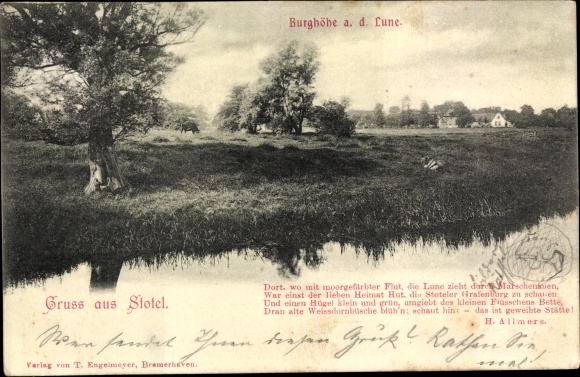 Burghöhe a. d. Lune.
Gruss aus Stotel.
Dort, wo mit moorgefärbter Flut, die Lune zieht durch Marschenauen,
War einst der lieben Heimat Hut, die Stoteler Grafenburg zu schauen
Und einen Hügel klein und grün, umgiebt des kleinen Flüsschens Bette,
Dran alte Weissdornbüsche blüh'n; schaut hin: – das ist geweihte Stätte!
H. Allmers.
Wer sendet Ihnen diesen Gruß? Rathen Sie
mal!
Verlag von T. Engelmeyer, Bremerhaven.